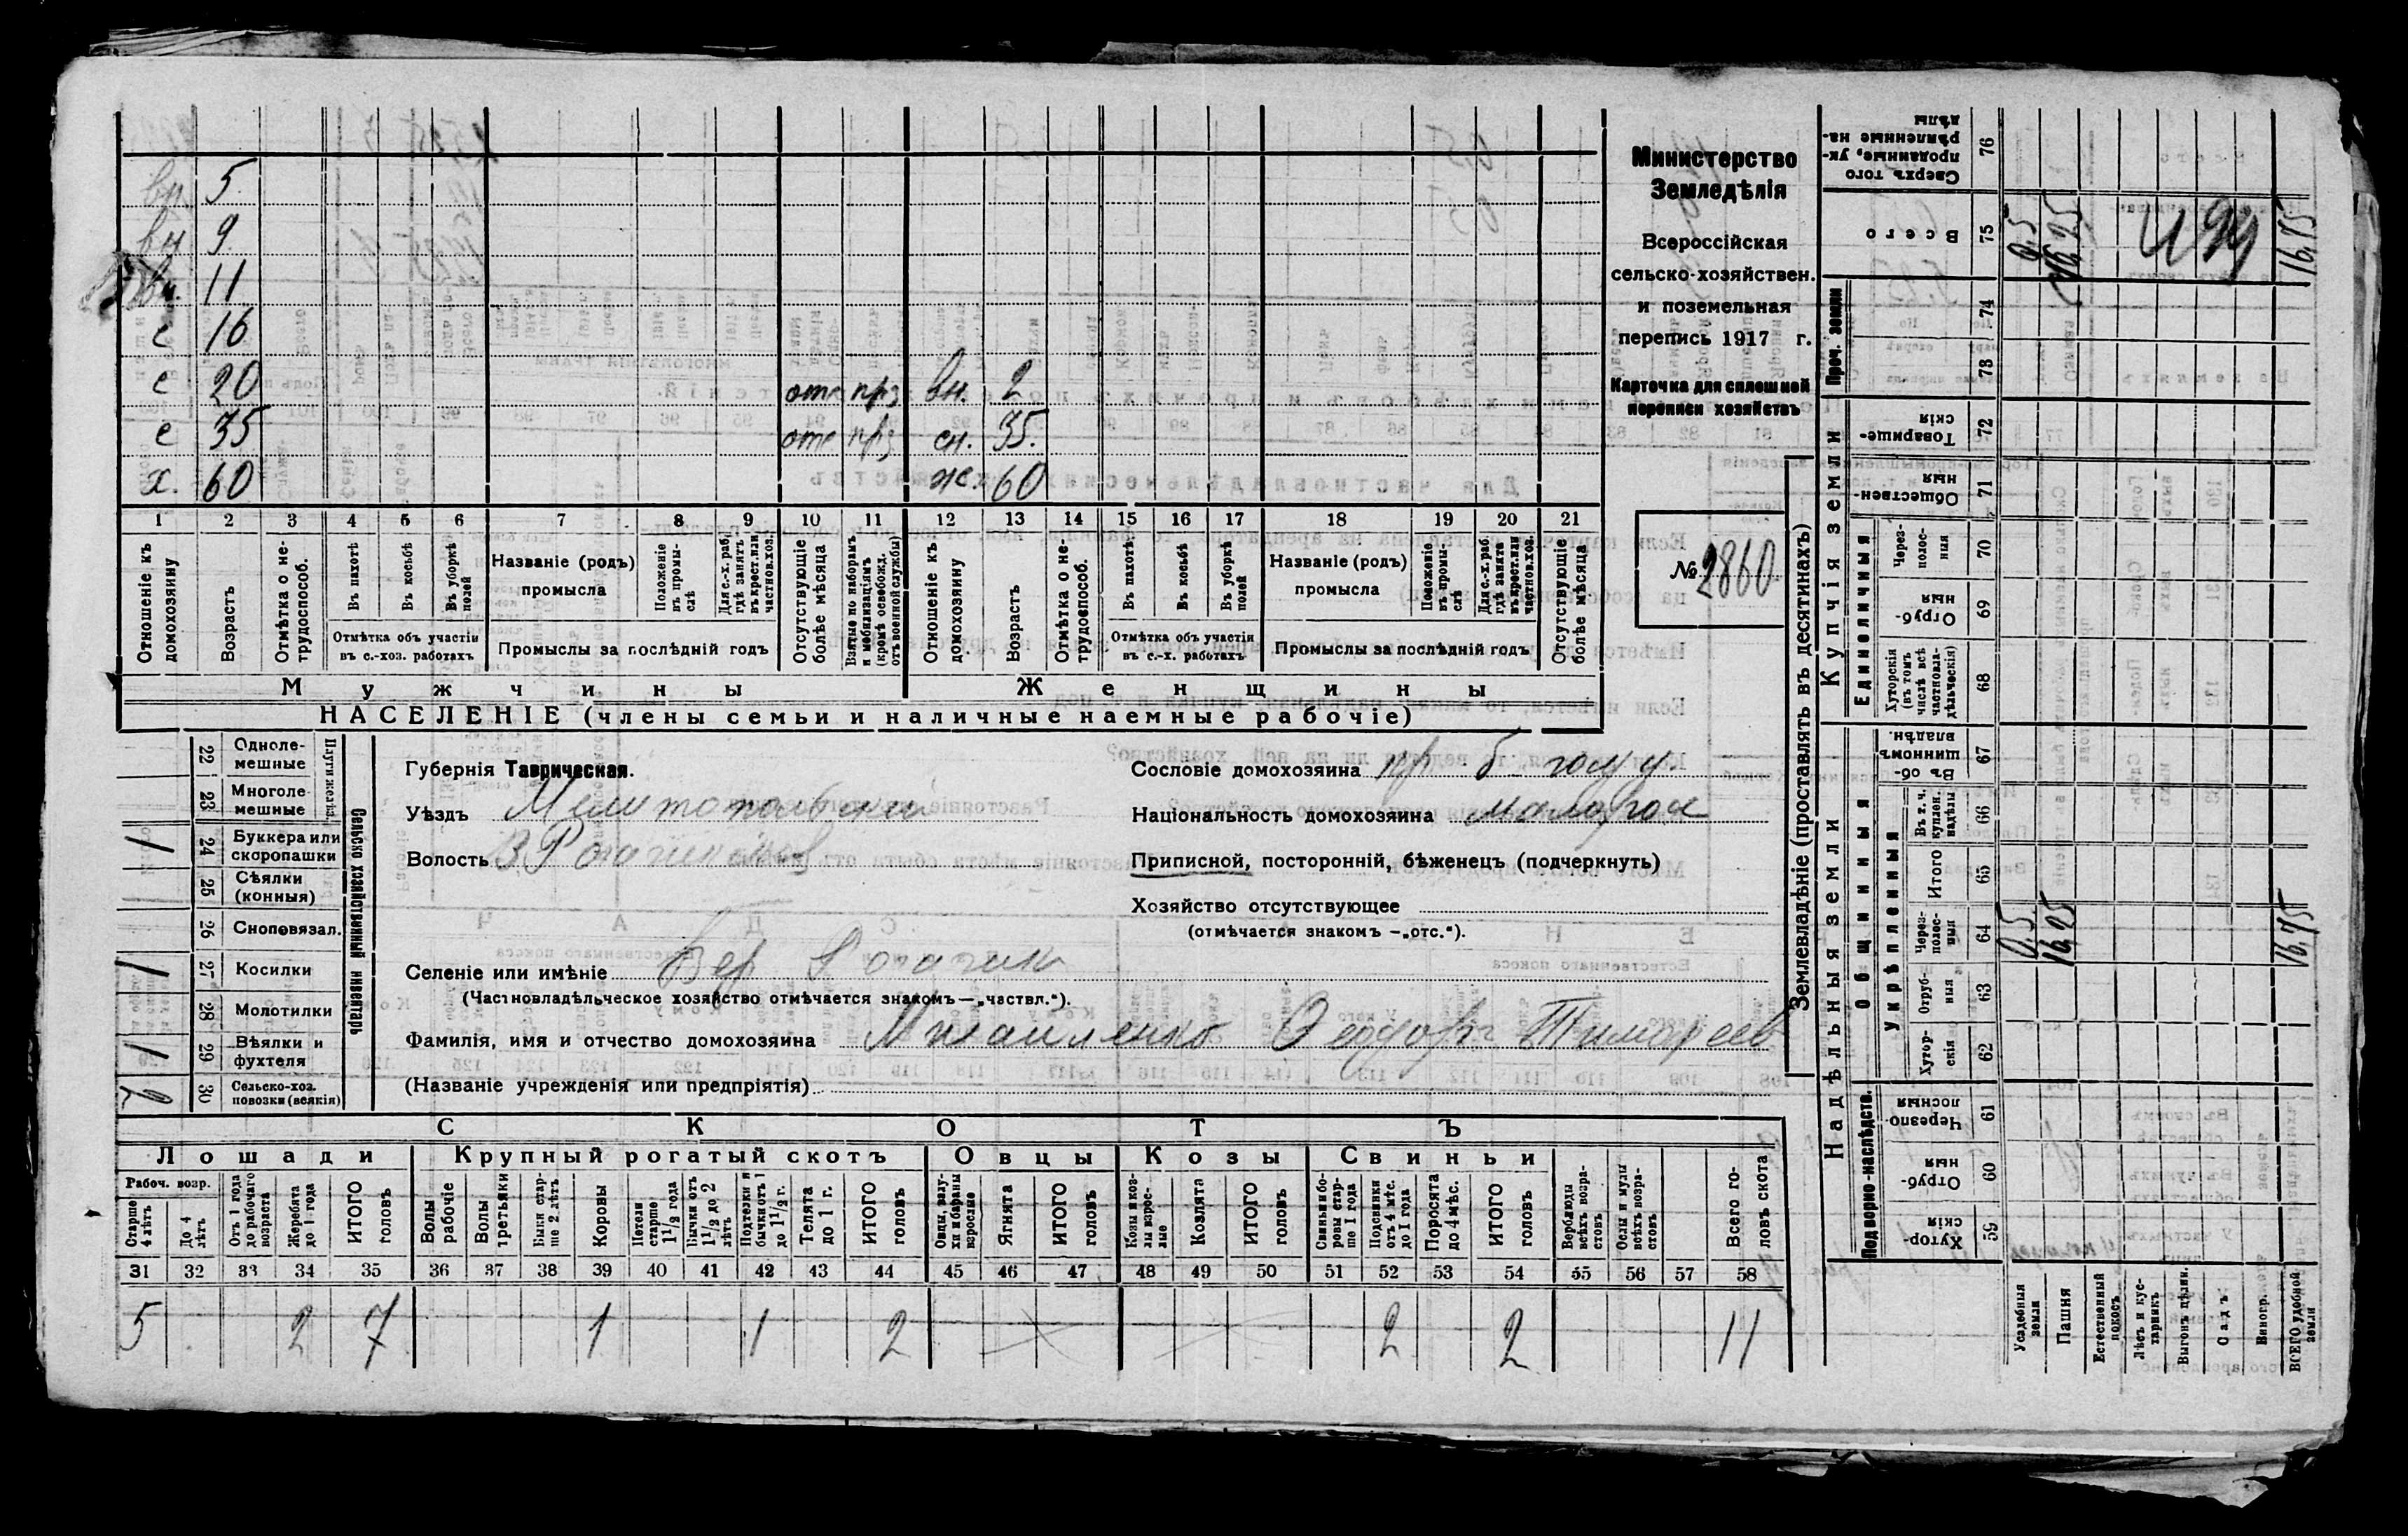 Министерство
Земледѣлія
Всероссійская
сельско-хозяйствен.
и поземельная
перепись 1917 г.
Карточка для сплошной
переписи хозяйствъ
№ 2860
вн. 5
вн 9
вн. 11
с 16
с 20 отс прз вн. 2
с 35 отс прз сн. 35.
х. 60 ж. 60
1 2 3 4 5 6 7 8 9 10 11 12 13 14 15 16 17 18 19 20 21
Отношеніе къ домохозяину
Возрастъ
Отмѣтка о не-трудоспособ.
Въ пахотѣ
Въ косьбѣ
Въ уборкѣ полей
Отмѣтка объ участіи въ с.-хоз. работахъ
Названіе (родъ) промысла
Положеніе въ промы-слѣ
Для с.-х. раб. гдѣ занятъ въ крест. или частнов. хоз.
Промыслы за послѣдній годъ
Отсутствующіе болѣе мѣсяца
Взятые по наборамъ и мобилизаціямъ (кромѣ освобожд. отъ военной службы)
Отношеніе къ домохозяину
Возрастъ
Отмѣтка о не-трудоспособ.
Въ пахотѣ
Въ косьбѣ
Въ уборкѣ полей
Отмѣтка объ участіи въ с.-х. работахъ
Названіе (родъ) промысла
Положеніе въ промы-слѣ
Для с.-х. раб. гдѣ занята въ крест. или частнов. хоз.
Промыслы за послѣдній годъ
Отсутствующіе болѣе мѣсяца
Мужчины Женщины
НАСЕЛЕНІЕ (члены семьи и наличные наемные рабочіе)
Сельско хозяйственный инвентарь
Плуги желѣз.
22 Одноле-мешные
23 Многоле-мешные
24 Буккера или скоропашки 1
25 Сѣялки (конныя)
26 Сноповязал.
27 Косилки 1
28 Молотилки
29 Вѣялки и фухтеля 1
30 Сельско-хоз. повозки (всякія) 2
Губернія Таврическая.
Уѣздъ Мелитопольскій
Волость В Рогачикская
Сословіе домохозяина
Національность домохозяина малорос
Приписной, посторонній, бѣженецъ (подчеркнуть)
Хозяйство отсутствующее
(отмѣчается знакомъ —„отс.“).
Селеніе или имѣніе Вер Рогачик
(Частновладѣльческое хозяйство отмѣчается знакомъ—„частвл.“).
Фамилія, имя и отчество домохозяина Михайленко Феодоръ Тимофеев
(Названіе учрежденія или предпріятія)
СКОТЪ
Лошади Крупный рогатый скотъ Овцы Козы Свиньи
Рабоч. возр.
Старше 4 лѣтъ
До 4 лѣтъ
Отъ 1 года до рабочаго возраста
Жеребята до 1 года
ИТОГО головъ
Волы рабочіе
Волы третьяки
Быки стар-ше 2 лѣтъ
Коровы
Нетели старше 1½ года
Бычки отъ 1½ до 2 лѣтъ
Подтелки и бычки отъ 1 до 1½ г.
Телята до 1 г.
ИТОГО головъ
Овцы, валу-хи и бараны взрослые
Ягнята
ИТОГО головъ
Козы и коз-лы взрос-лые
Козлята
ИТОГО головъ
Свиньи и бо-ровы стар-ше 1 года
Подсвинки отъ 4 мѣс. до 1 года
Поросята до 4 мѣс.
ИТОГО головъ
Верблюды всѣхъ возра-стовъ
Ослы и мулы всѣхъ возра-стовъ
Всего го-ловъ скота
31 32 33 34 35 36 37 38 39 40 41 42 43 44 45 46 47 48 49 50 51 52 53 54 55 56 57 58
5 2 7 1 1 2 2 2 11
Землевладѣніе (проставлять въ десятинахъ)
Надѣльныя земли Купчія земли Проч. земли
Подворно-наслѣдств. Общинныя Единоличныя
Укрѣпленныя
Хутор-скія 59
Отруб-ныя 60
Черезпо-лосныя 61
Хутор-скія 62
Отруб-ныя 63
Через-полос-ныя 64
Итого 65
Въ т. ч. куплен. надѣлы 66
Въ об-щинномъ владѣн. 67
Хуторскія (въ томъ числѣ всѣ частновла-дѣльческія) 68
Отруб-ныя 69
Через-полос-ныя 70
Обществен-ныя 71
Товарище-скія 72
73
74
Всего 75
Сверхъ того проданные, ук-рѣпленные на-дѣлы 76
Усадебныя земли 0,5 0,5
Пашня 16,25 16,25
Естественный покосъ
Лѣсъ и кус-тарникъ
Выгонъ цѣлин.
Садъ
Виногр.
ВСЕГО удобной земли 16,75 16,75